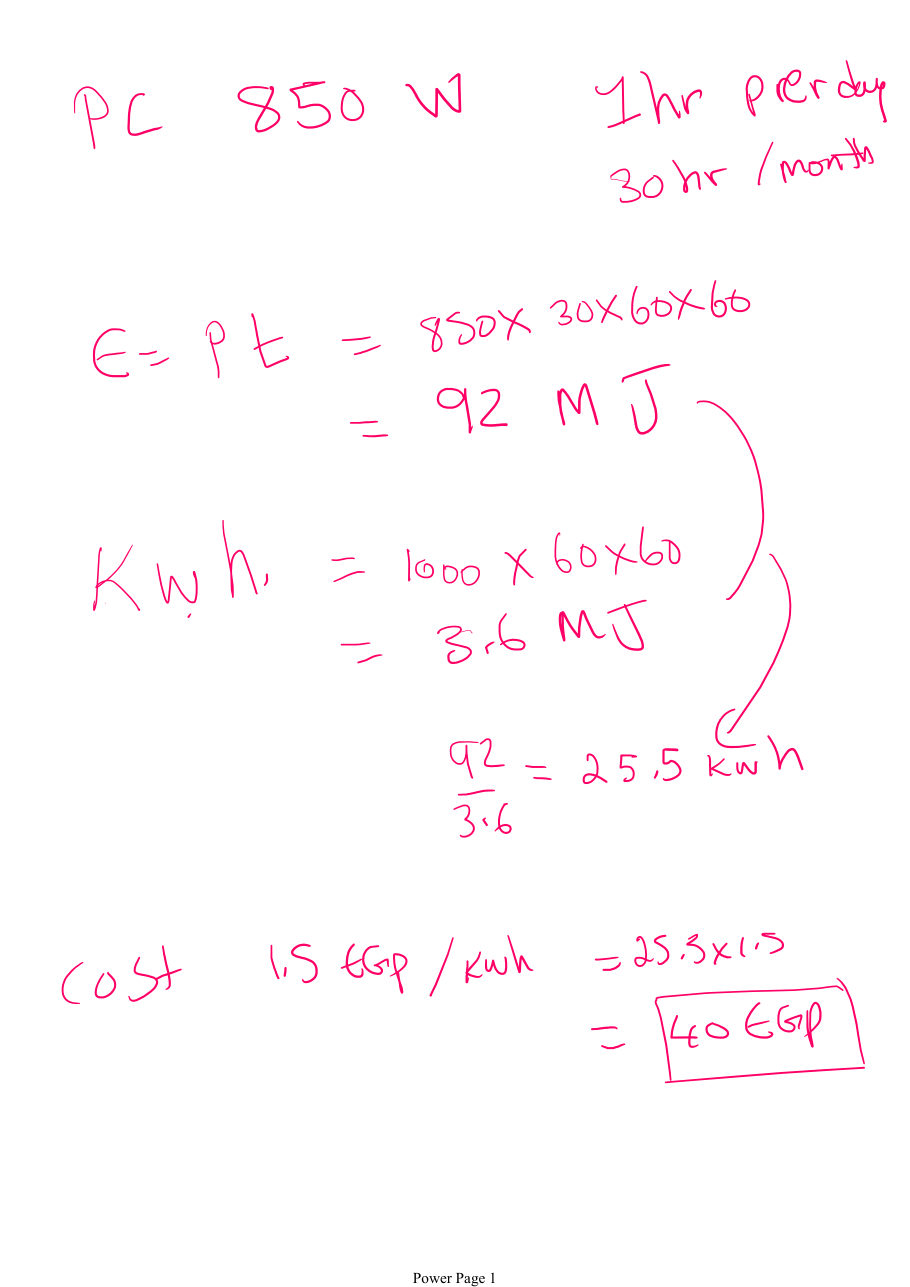 PC 850 W 1hr per day
30 hr / month
E = Pt = 850 x 30x60x60
= 92 MJ
Kwh. = 1000 x 60x60
= 3.6 MJ
92/3.6 = 25.5 kwh
cost 1.5 EGP / kwh = 25.5x1.5
= 40 EGP
Power Page 1